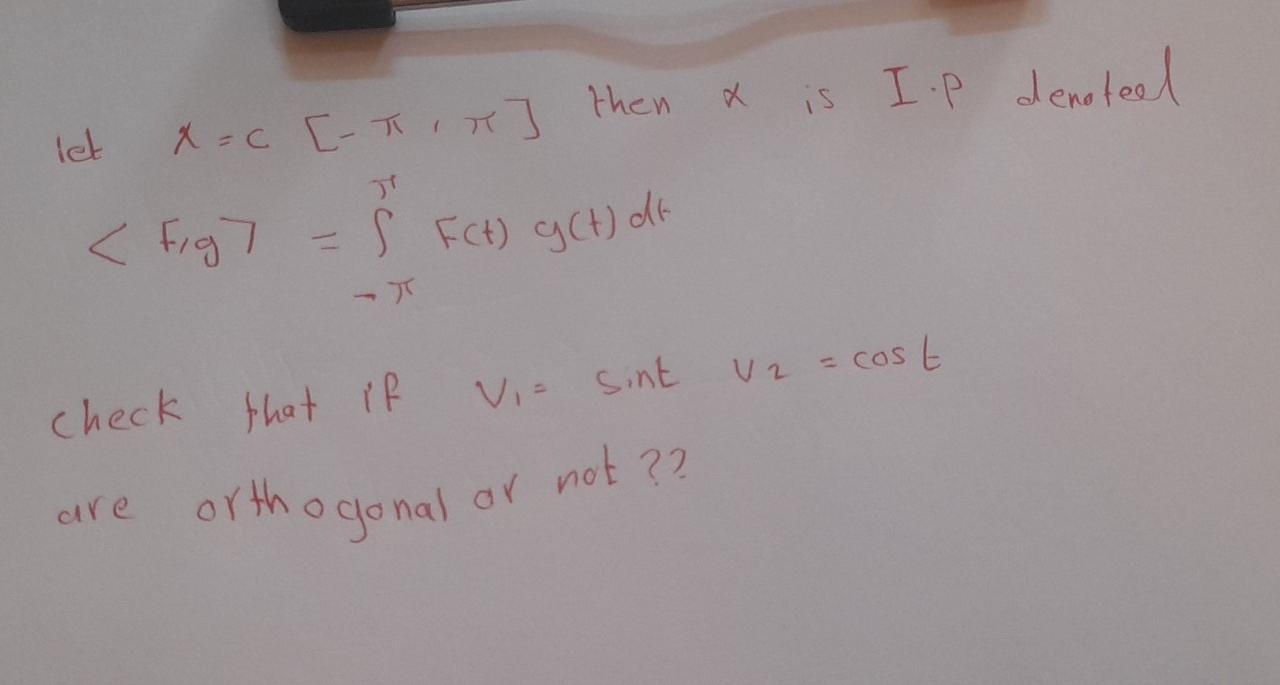 let X = C [-π, π] then X is I.P denoted
< F, g > = ∫ F(t) g(t) dt
π
-π
check that if V₁ = sint V₂ = cos t
are orthogonal or not ??